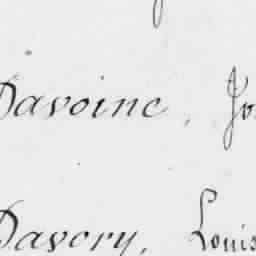 Davoine, Jo
Davory, Louis